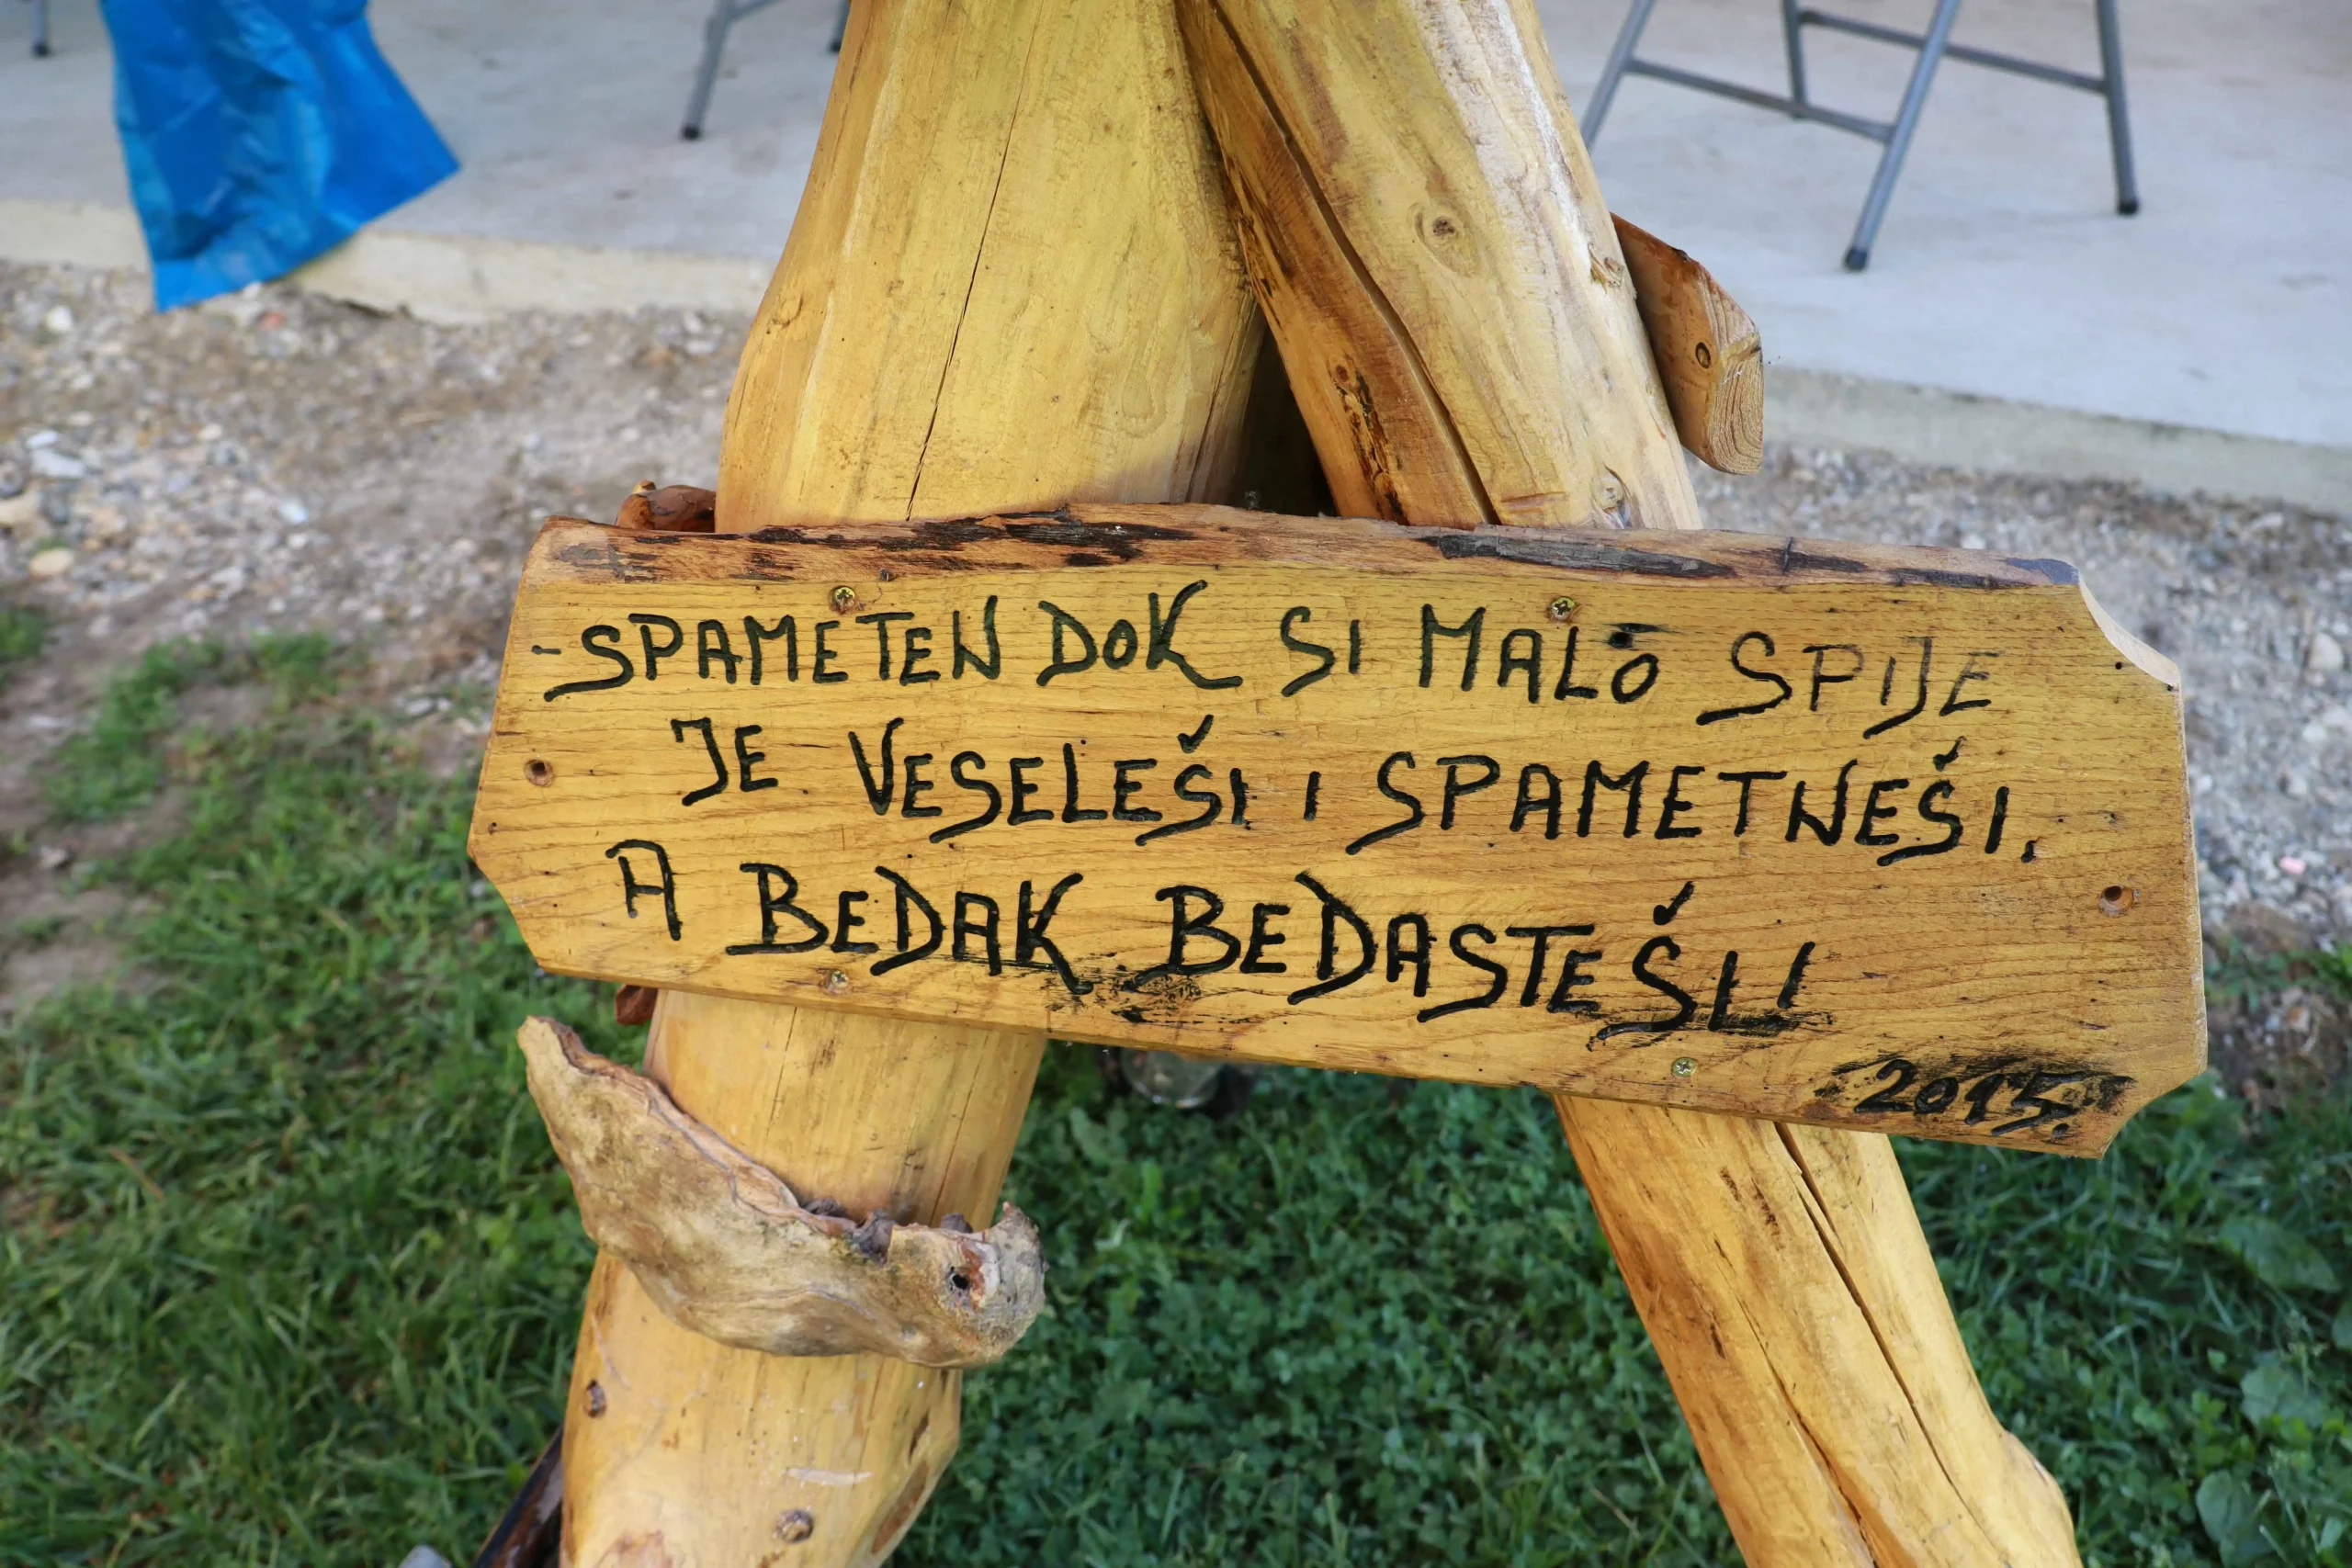 -SPAMETEN DOK SI MALO SPIJE
JE VESELEŠI I SPAMETNEŠI,
A BEDAK BEDASTEŠI!
2015.